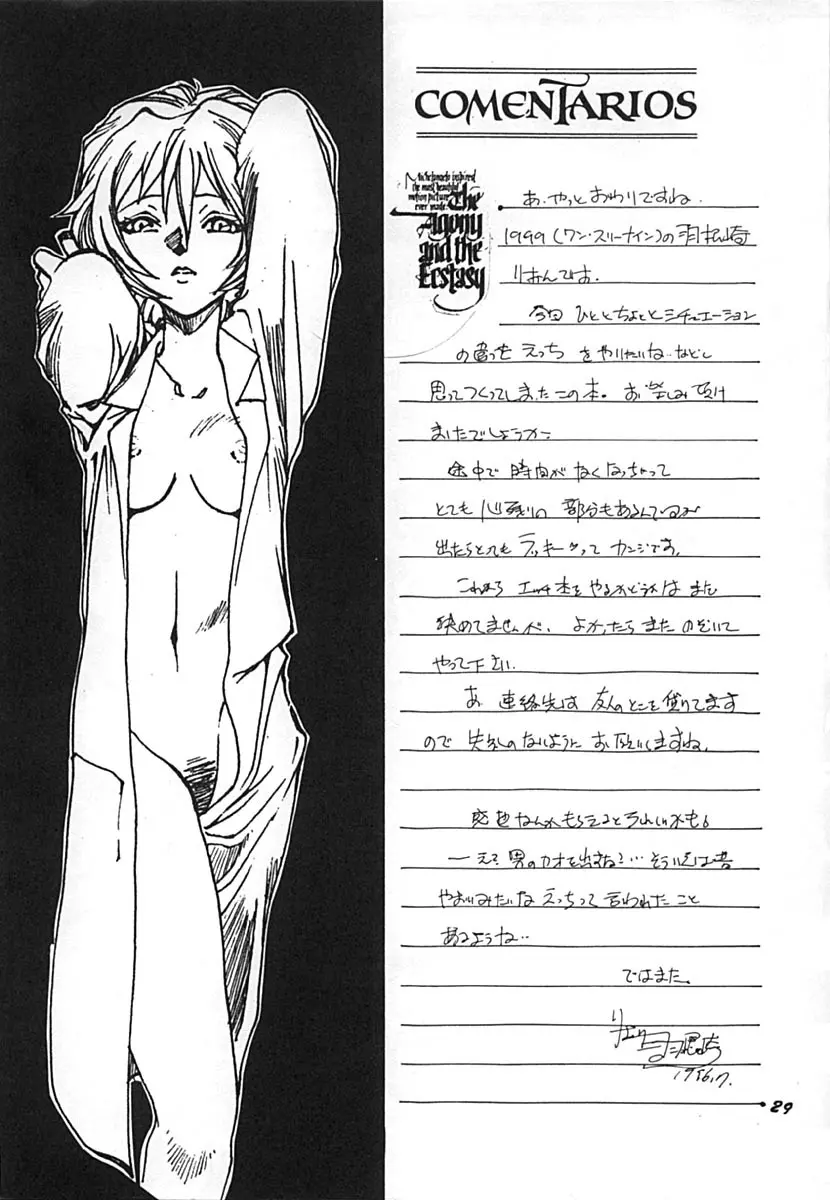 COMENTARIOS
Michelangelo inspired
the most beautiful
motion picture
ever made.
The
Agony
and the
Ecstasy
あ、やっとおわりですね。
1999(ワン・スリーナイン)の羽根崎
りおんです。
今回ひととちょっとシチュエーション
の違ったえっちをやりたいね…などと
思ってつくってしまったこの本。お楽しみ頂け
ましたでしょうか?
途中で時間がなくなっちゃって
とても心残りの部分もあるんでいるが
出たらとってもラッキーってカンジです。
これからエッチ本をやるかどうかはまだ
決めてませんが、よかったらまたのぞいて
やって下さい。
あ、連絡先は友人のとこを借りてます
ので失礼のないようにお願いしますね。
感想なんかもらえるとうれしいかも。
―え?男のカオを出すな?…そういえば昔
やおいみたいなえっちって言われたこと
あるような…
ではまた。
29